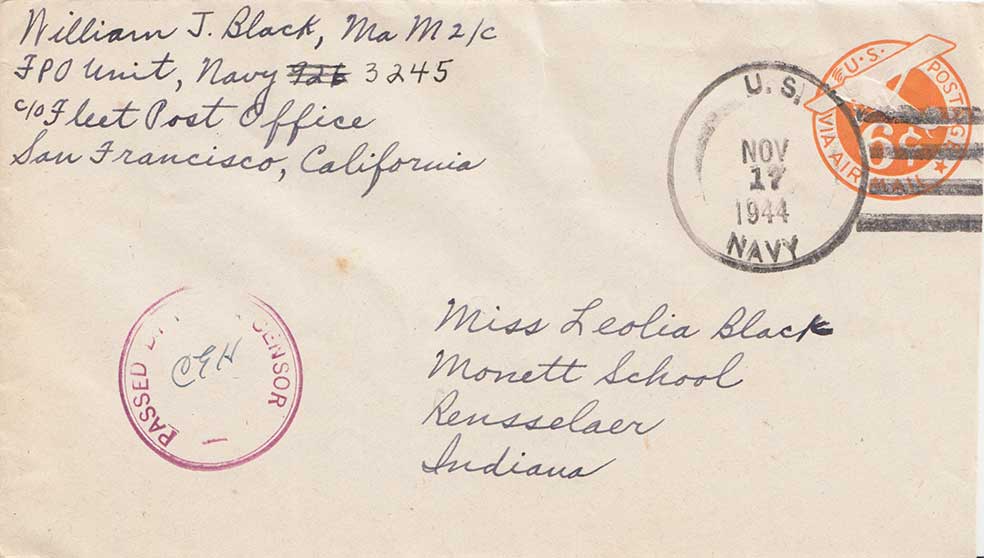 William J. Black, Ma M 2/c
FPO Unit, Navy 926 3245
c/o Fleet Post Office
San Francisco, California
U.S. POSTAGE
6¢
VIA AIR MAIL
U. S.
NOV
17
1944
NAVY
PASSED BY CENSOR
CGH
Miss Leolia Black
Monett School
Rensselaer
Indiana